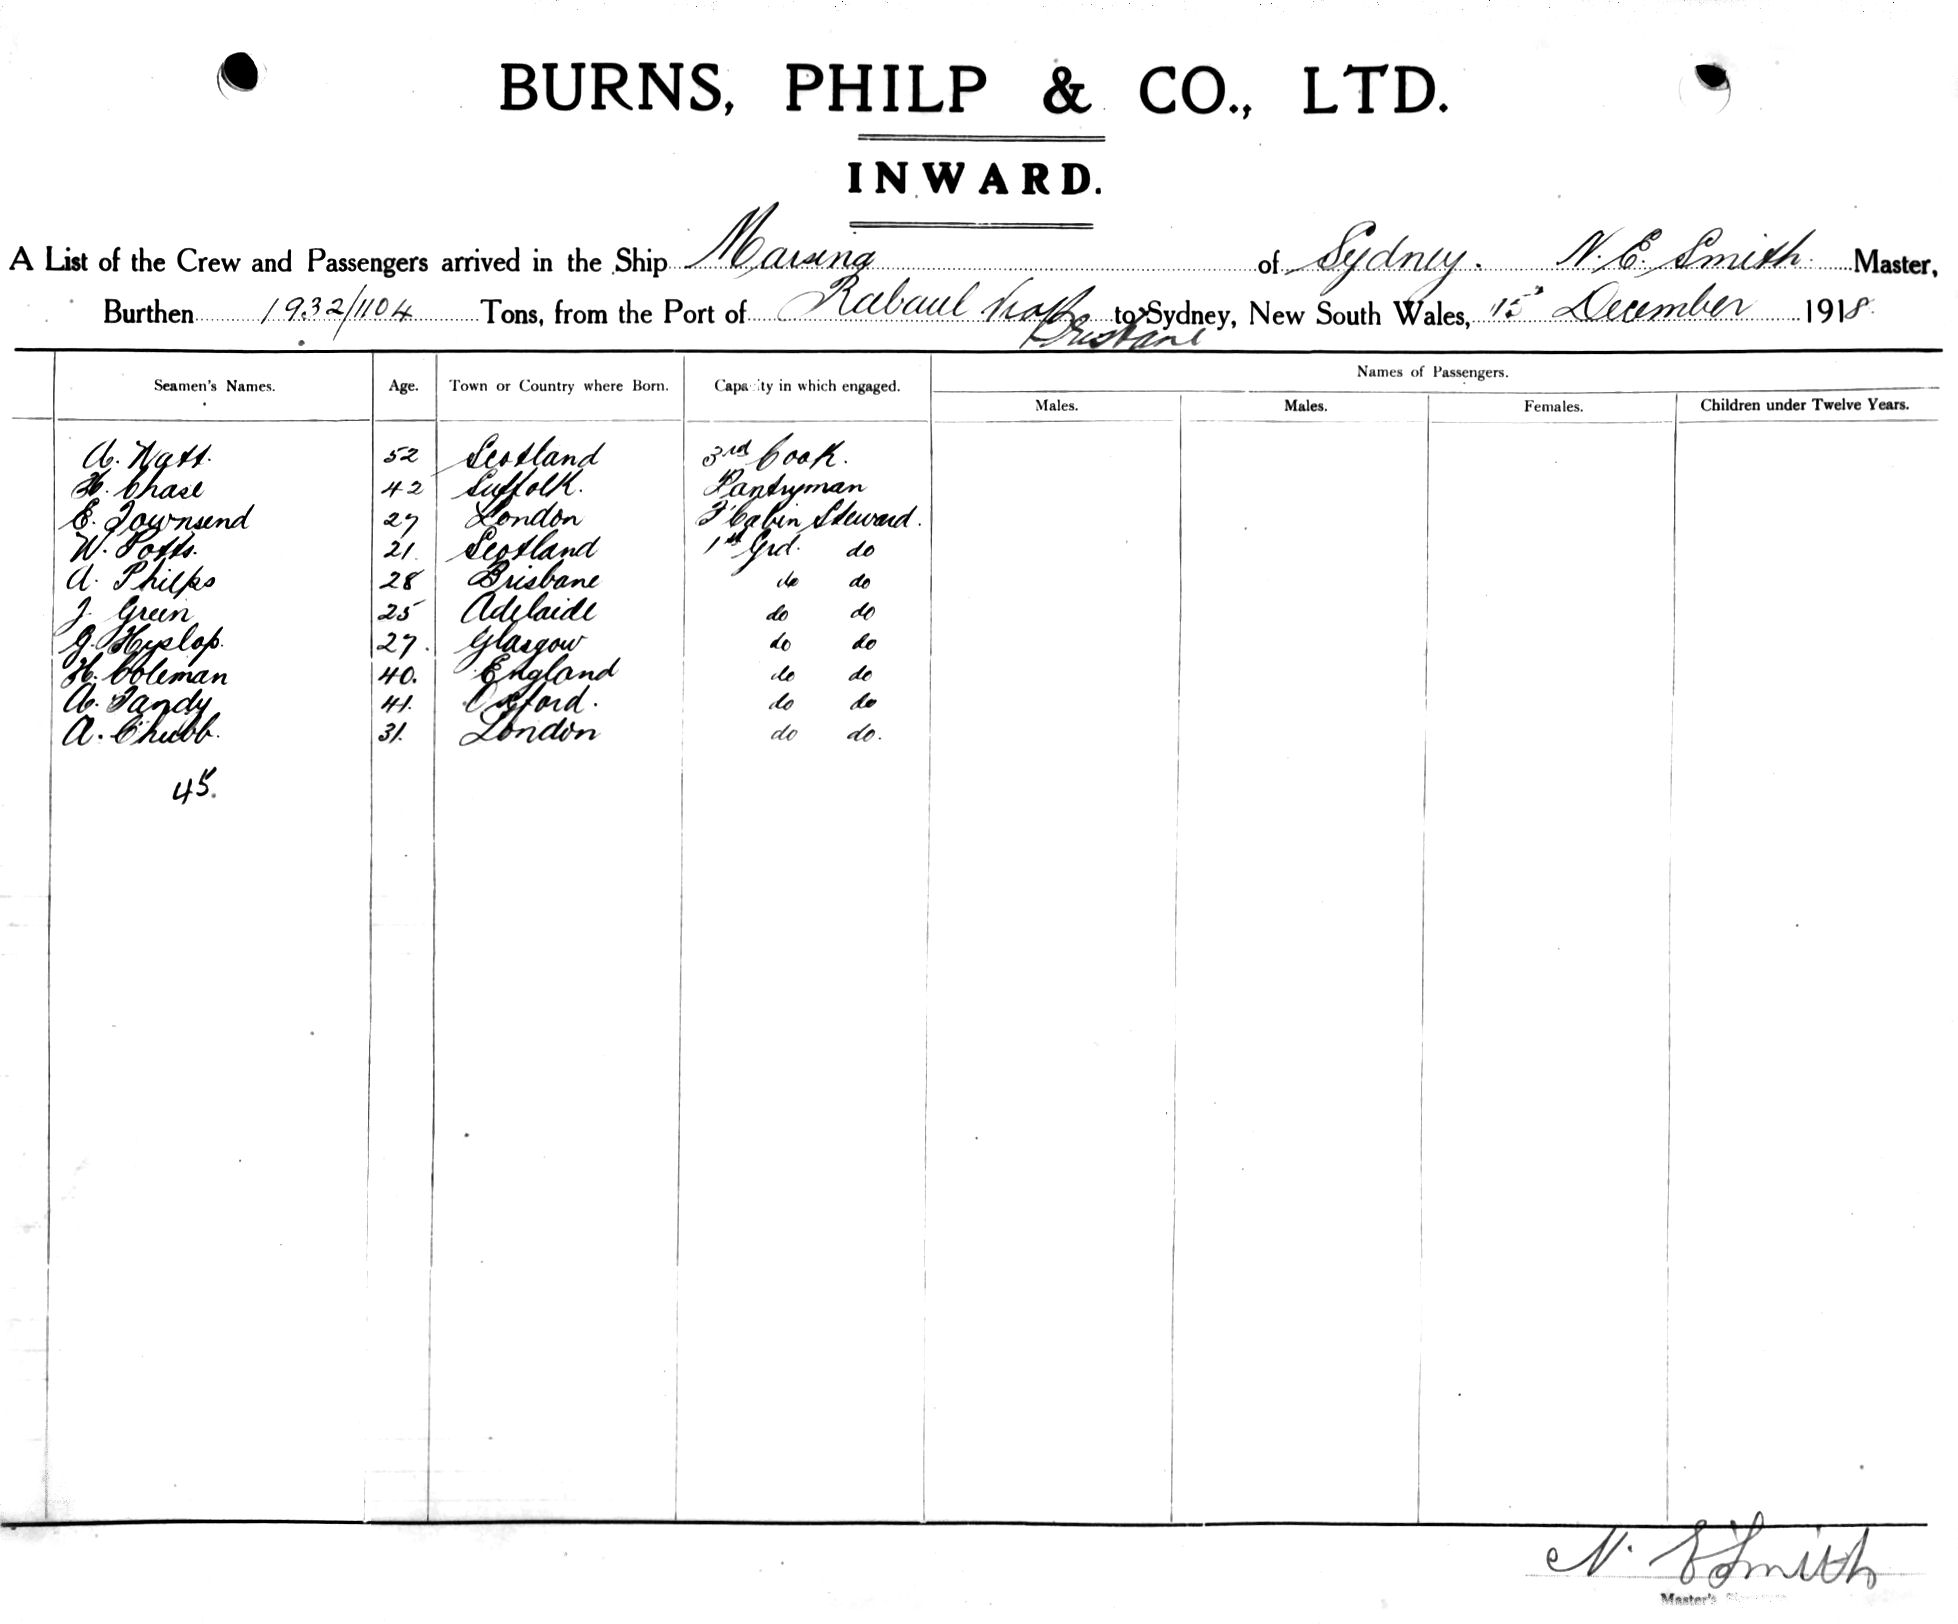 BURNS, PHILP & CO., LTD.
INWARD.
A List of the Crew and Passengers arrived in the Ship Marsina of Sydney. N. E. Smith. Master,
Burthen 1932/1104 Tons, from the Port of Rabaul via Brisbane to Sydney, New South Wales, 15 December 1918.
Seamen's Names. Age. Town or Country where Born. Capacity in which engaged. Names of Passengers.
Males. Males. Females. Children under Twelve Years.
A. Watt. 52 Scotland 3rd Cook.
H. Chase 42 Suffolk. Pantryman
E. Townsend 27 London F'Cabin Steward.
W. Potts. 21 Scotland 1st Grd. do
A. Philps 28 Brisbane do do
J. Green 25 Adelaide do do
G. Hyslop. 27. Glasgow do do
H. Coleman 40. England do do
A. Tandy 41. Oxford. do do
A. Chubb. 31. London do do.
45.
N. E Smith
Master's